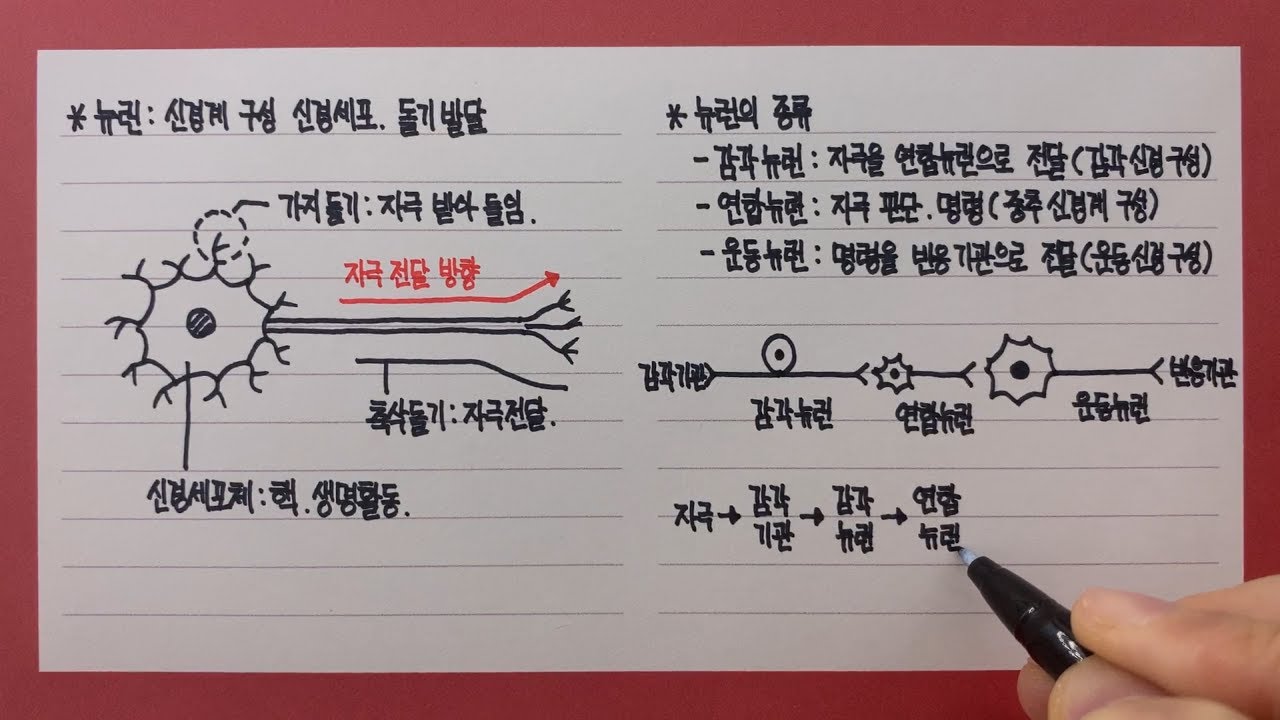 * 뉴런 : 신경계 구성 신경세포. 돌기 발달
가지돌기 : 자극 받아 들임.
자극 전달 방향
축삭돌기 : 자극전달.
신경세포체 : 핵. 생명활동.
* 뉴런의 종류
- 감각뉴런 : 자극을 연합뉴런으로 전달 (감각신경 구성)
- 연합뉴런 : 자극 판단. 명령 (중추신경계 구성)
- 운동뉴런 : 명령을 반응기관으로 전달 (운동신경 구성)
감각기관
반응기관
감각뉴런
연합뉴런
운동뉴런
자극 → 감각 → 감각 → 연합
기관 뉴런 뉴런